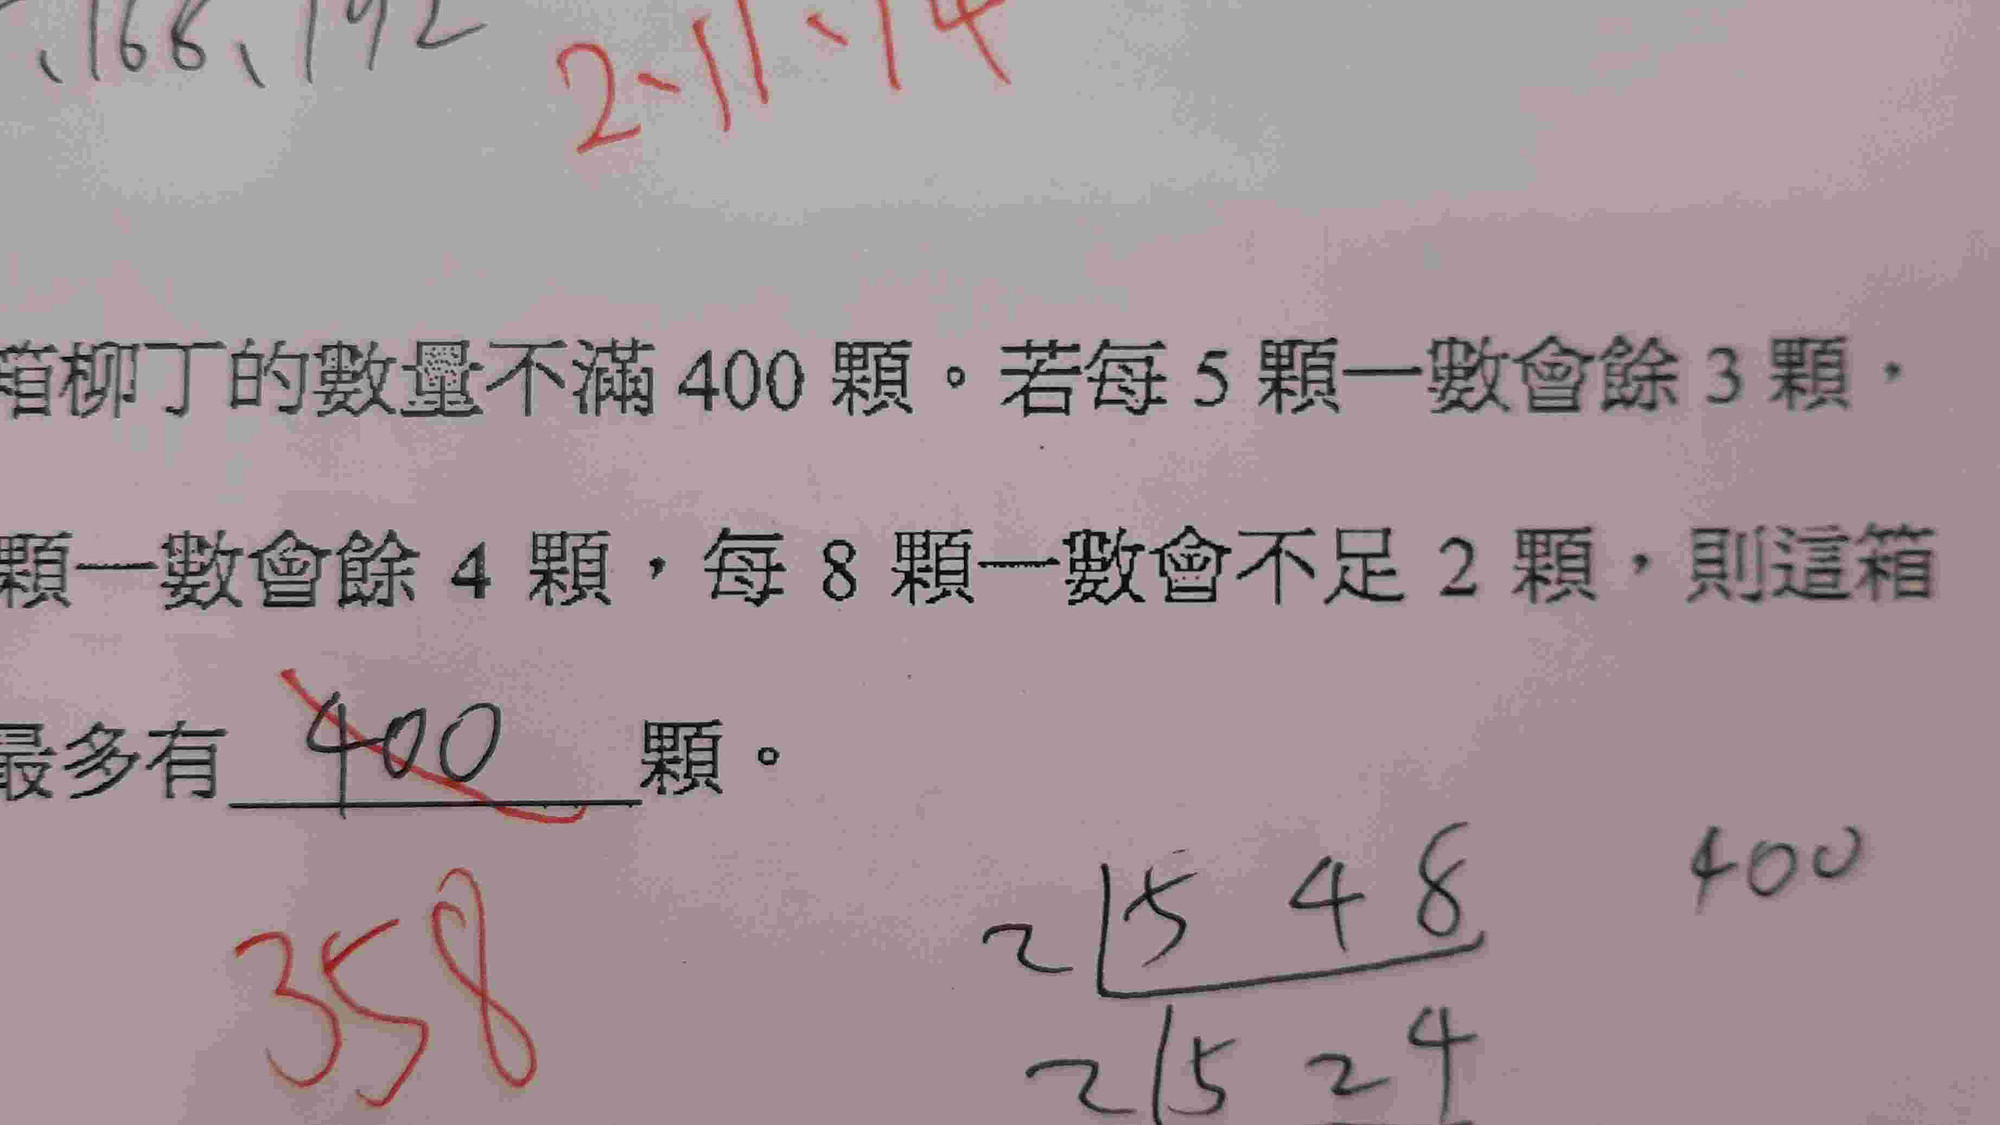 、168、192 2、11、14
箱柳丁的數量不滿 400 顆。若每 5 顆一數會餘 3 顆，
顆一數會餘 4 顆，每 8 顆一數會不足 2 顆，則這箱
最多有 400 顆。
358
2 5 4 8 400
2 5 2 4